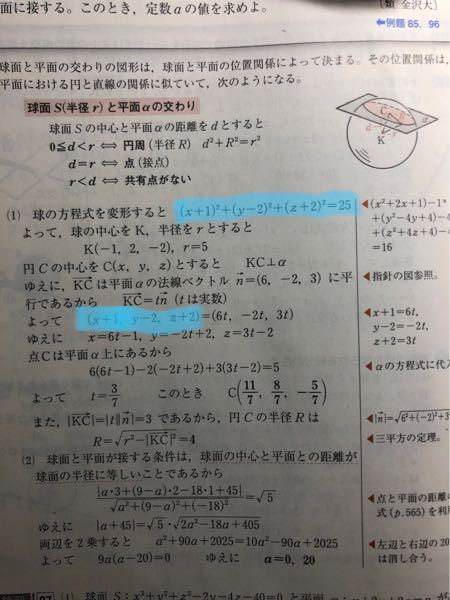 面に接する。このとき，定数aの値を求めよ。
〔類 金沢大〕
←例題 85，96
球面と平面の交わりの図形は，球面と平面の位置関係によって決まる。その位置関係は，
平面における円と直線の関係に似ていて，次のようになる。
球面S(半径r)と平面αの交わり
球面Sの中心と平面αの距離をdとすると
0≦d<r ⇔ 円周(半径R) d²+R²=r²
d=r ⇔ 点(接点)
r<d ⇔ 共有点がない
C R α
d r
K
(1) 球の方程式を変形すると (x+1)²+(y-2)²+(z+2)²=25
よって，球の中心をK，半径をrとすると
K(-1, 2, -2), r=5
円Cの中心をC(x, y, z)とすると KC⊥α
ゆえに，KC→は平面αの法線ベクトル n→=(6, -2, 3) に平
行であるから KC→=tn→ (tは実数)
よって (x+1, y-2, z+2)=(6t, -2t, 3t)
ゆえに x=6t-1, y=-2t+2, z=3t-2
点Cは平面α上にあるから
6(6t-1)-2(-2t+2)+3(3t-2)=5
よって t=3/7 このとき C(11/7, 8/7, -5/7)
また，|KC→|=|t||n→|=3 であるから，円Cの半径Rは
R=√(r²-|KC→|²)=4
(2) 球面と平面が接する条件は，球面の中心と平面との距離が
球面の半径に等しいことであるから
|a·3+(9-a)·2-18·1+45|/√(a²+(9-a)²+(-18)²)=√5
ゆえに |a+45|=√5·√(2a²-18a+405)
両辺を2乗すると a²+90a+2025=10a²-90a+2025
よって 9a(a-20)=0 ゆえに a=0, 20
◀(x²+2x+1)-1²
+(y²-4y+4)-4
+(z²+4z+4)-4
=16
◀指針の図参照。
◀x+1=6t,
y-2=-2t,
z+2=3t
◀αの方程式に代入
◀|n→|=√6²+(-2)²+3²
◀三平方の定理。
◀点と平面の距離
式(p.565)を利用
◀左辺と右辺の20
は消し合う。
97 (1) 球面S：x²+y²+z²-2y-4z-40=0 と平面